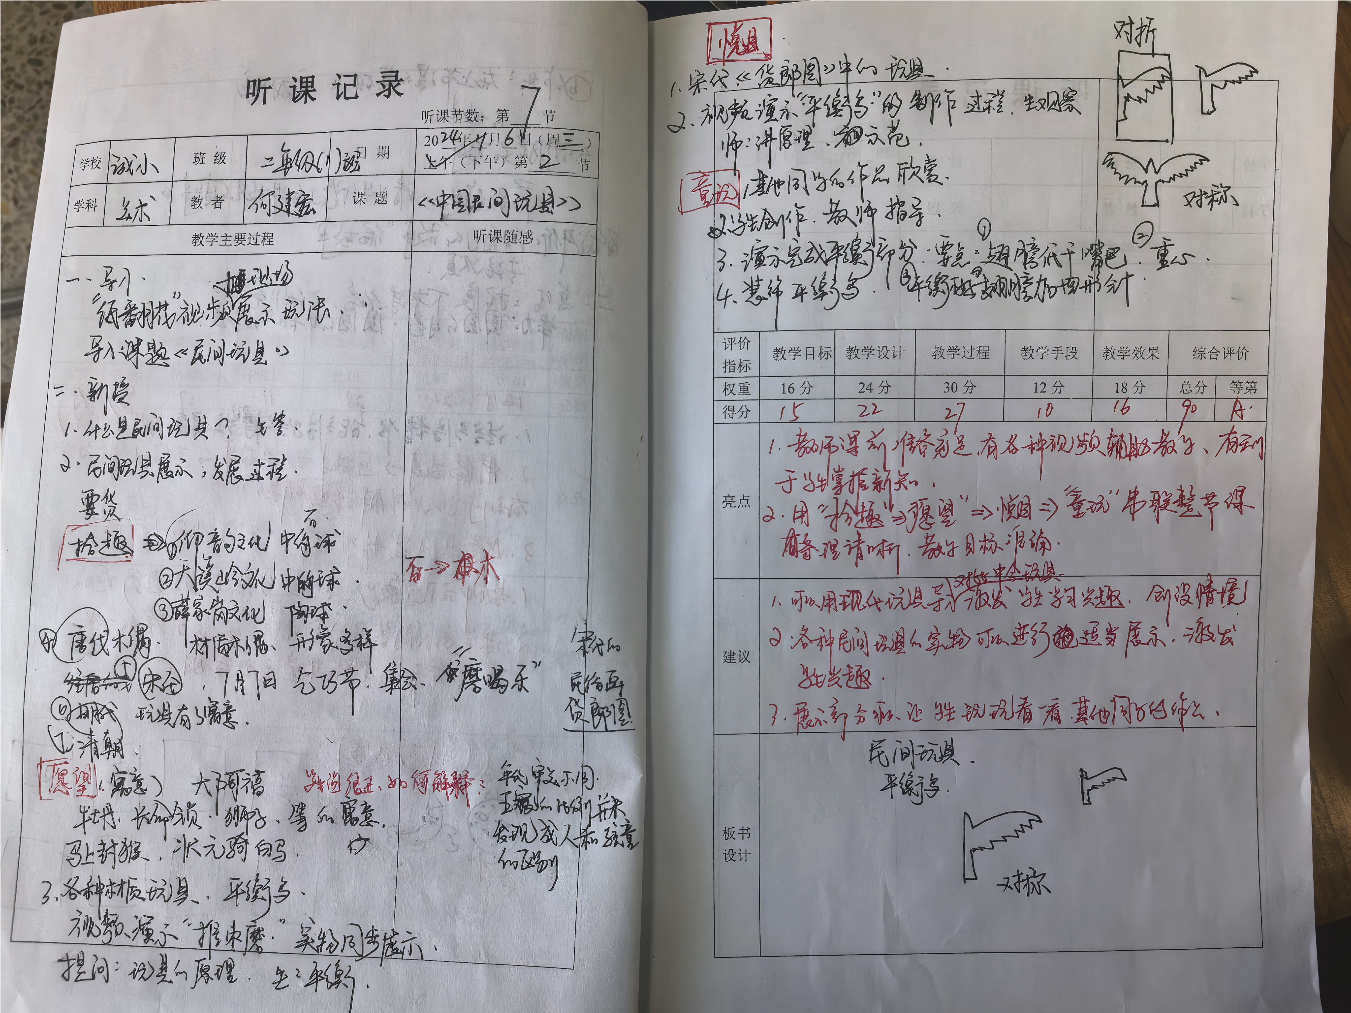 听课记录
听课节数：第 7 节
学校 诚小 班级 二年级(1)班 日期 2024年11月6日(周三) 上午(下午)第2节
学科 美术 教者 何建宏 课题 《中国民间玩具》
教学主要过程 听课随感
一、导入
"纸翻花"视频展示玩法.
导入课题《民间玩具》
二、新授
1.什么是民间玩具？生答
2.民间玩具展示，发展过程.
耍货
拾趣 ⇒ ①仰韶文化 中 石球
②大溪文化 中陶球.
③薛家岗文化 陶球.
石→木
④唐代木偶. 材质木偶、形象多样
宋代，7月7日 乞巧节 "磨喝乐"
宋代的
民俗画
货郎图
明代 玩具有了寓意.
清朝.
愿望（寓意） 大阿福 如何解释？
牡丹、长命锁、狮子、等的寓意.
马上封猴、状元骑白马.
年代审美不同.
发现成人和孩童
的区别
3.各种材质玩具、平衡鸟.
视频演示"推束磨" 实物同步展示.
提问：玩具的原理. 生：平衡.
悦目
1.宋代《货郎图》中的玩具.
2.视频演示"平衡鸟"的制作过程，生观察
师：讲原理，示范.
对折
对称
童玩 1.其他同学的作品欣赏.
2.学生创作，教师指导.
3.演示完成平衡鸟部分. 要点：①翅膀低于嘴巴. ②重心.
4.装饰平衡鸟.
评价指标 教学目标 教学设计 教学过程 教学手段 教学效果 综合评价
权重 16分 24分 30分 12分 18分 总分 等第
得分 15 22 27 10 16 90 A
亮点
1.教师课前准备充足，有各种视频辅助教学、有利
于学生掌握新知.
2.用"拾趣"⇒愿望"⇒悦目⇒"童玩"串联整节课
条理清晰，教学目标
建议
1.可以用现代玩具导入激发学生学习兴趣，创设情境
2.各种民间玩具的实物可以进行适当展示，激发
学生兴趣.
3.展示部分可以让学生玩玩看一看其他同学的作品.
板书设计
民间玩具.
平衡鸟
对称